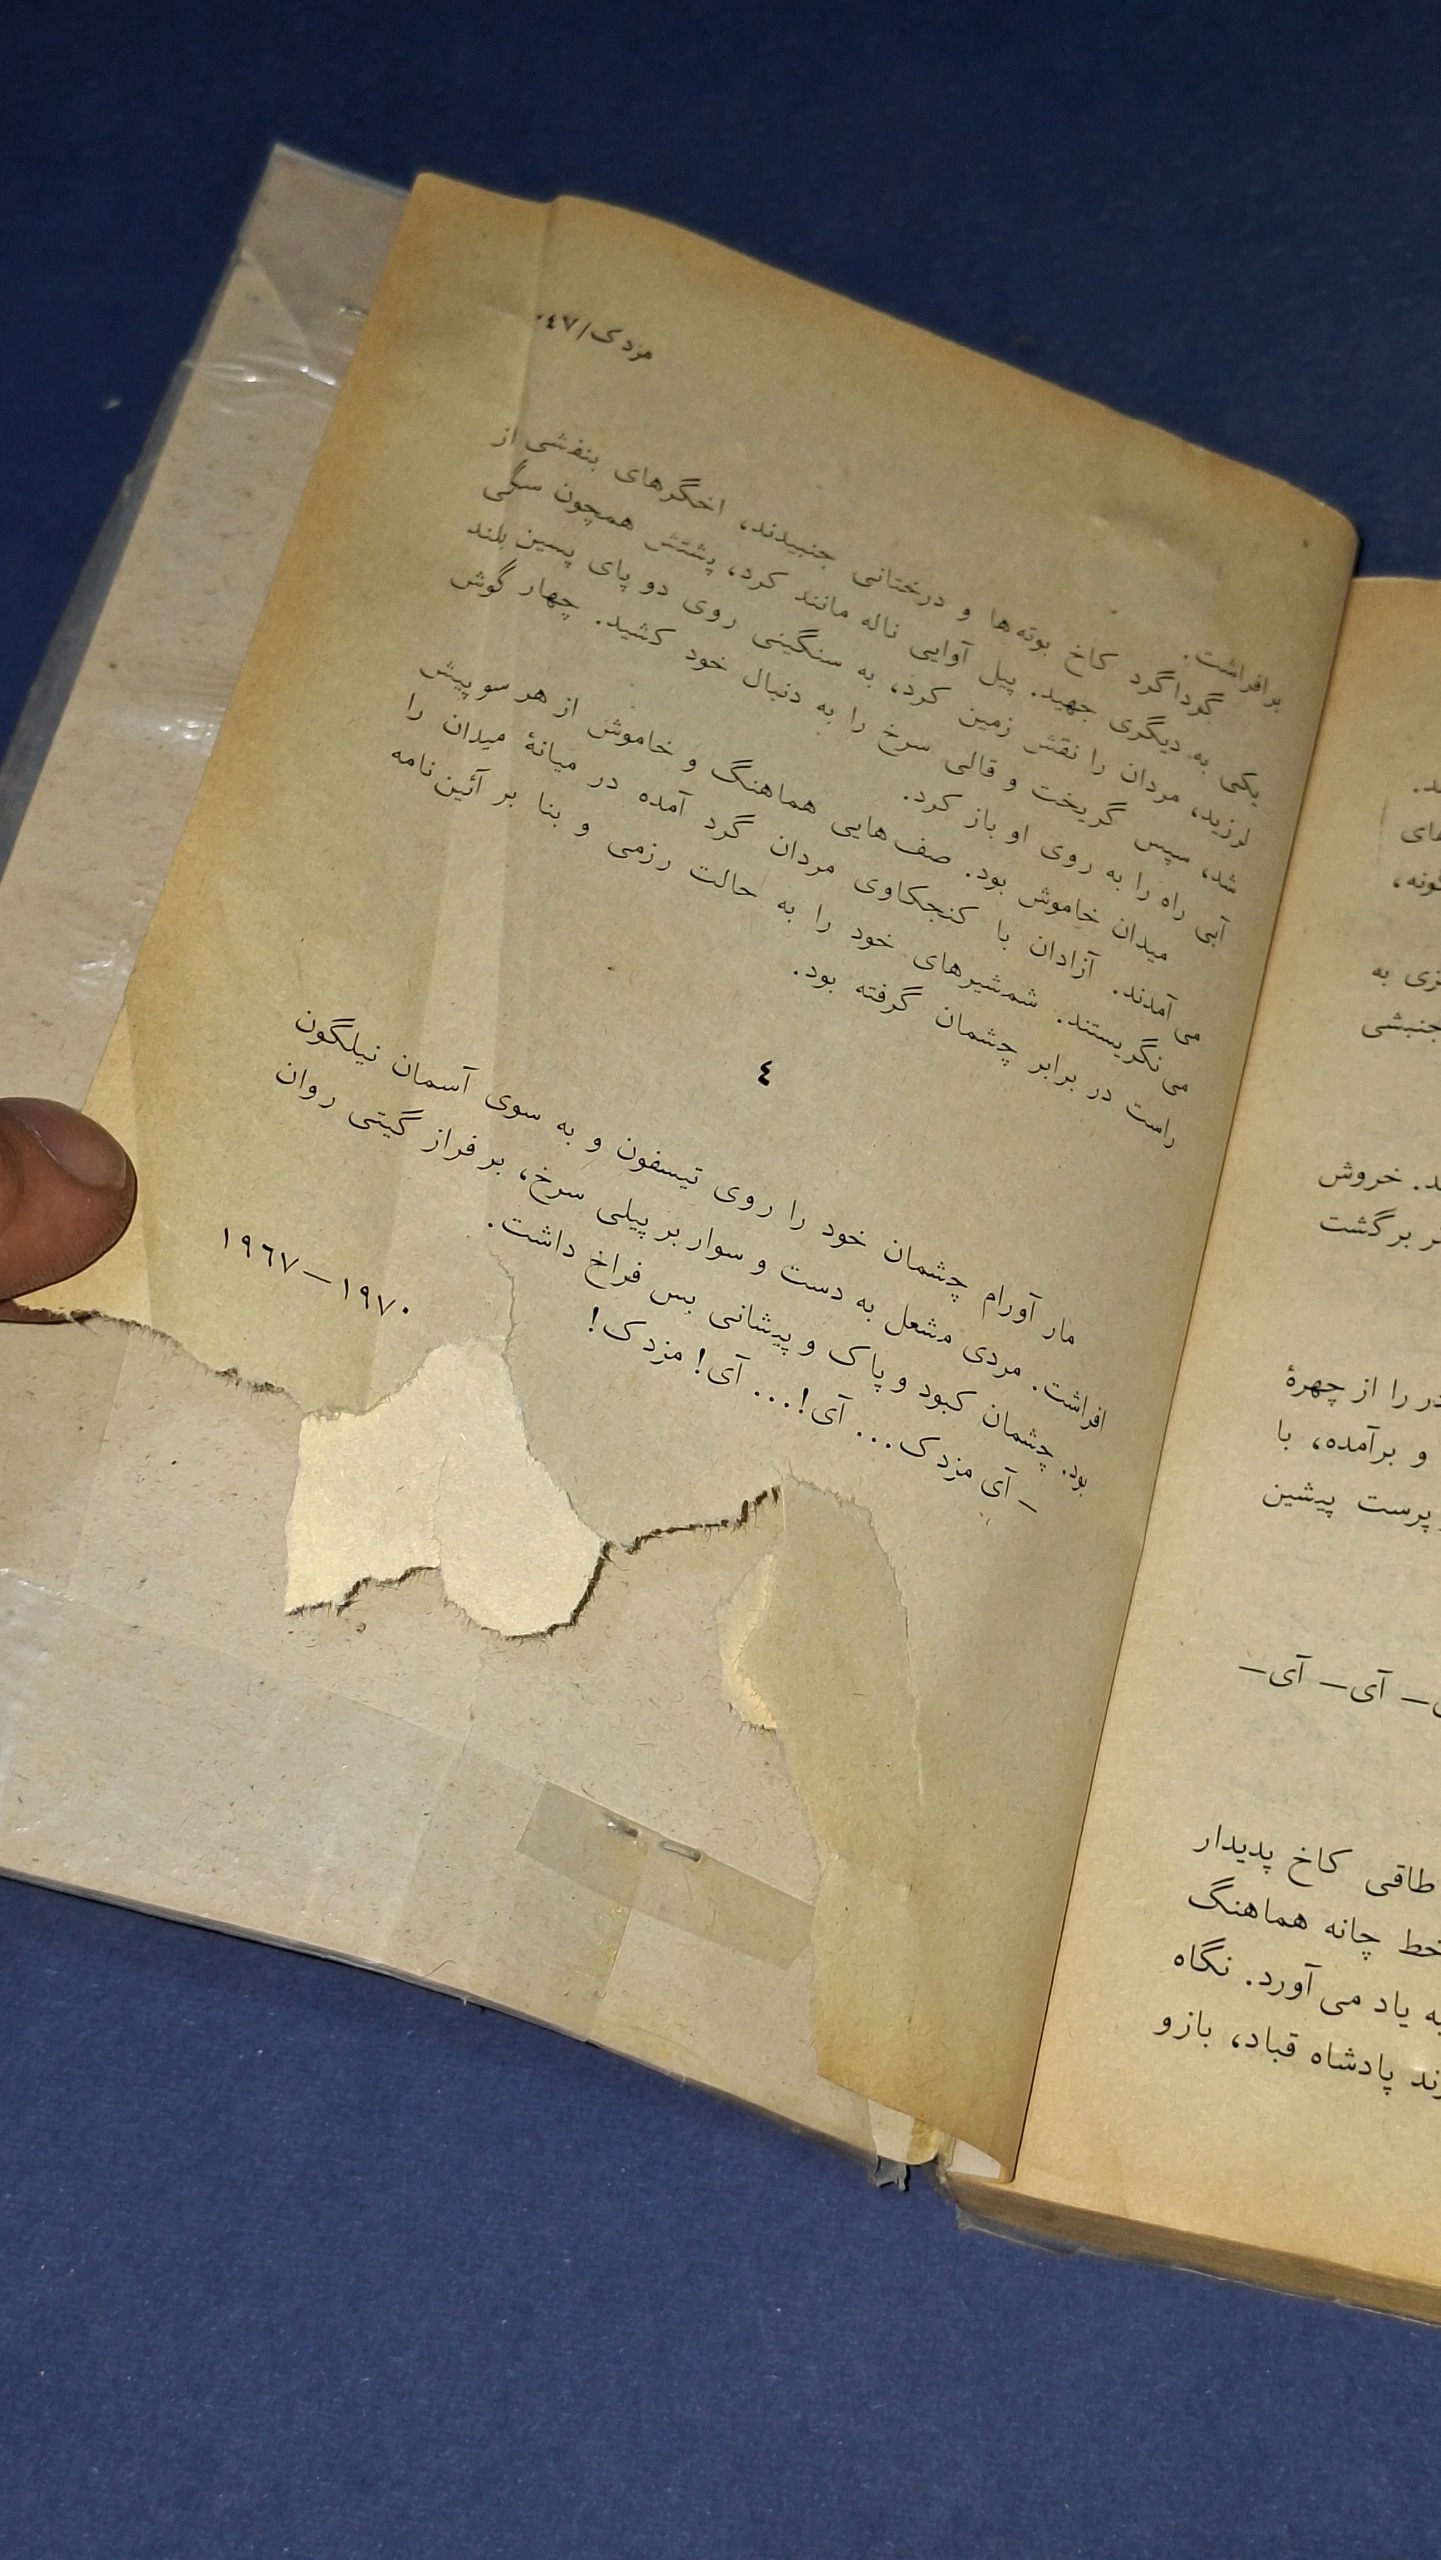 مزدک/٤٧٠
برافراشت.
گرداگرد کاخ بوته‌ها و درختانی جنبیدند، اخگرهای بنفشی از
یکی به دیگری جهید. پیل آوایی ناله مانند کرد، پشتش همچون سگی
لرزید، مردان را نقش زمین کرد، به سنگینی روی دو پای پسین بلند
شد، سپس گریخت و قالی سرخ را به دنبال خود کشید. چهار گوش
آبی راه را به روی او باز کرد.
میدان خاموش بود. صف‌هایی هماهنگ و خاموش از هر سو پیش
می‌آمدند. آزادان با کنجکاوی مردان گرد آمده در میانهٔ میدان را
می‌نگریستند. شمشیرهای خود را به حالت رزمی و بنا بر آئین‌نامه
راست در برابر چشمان گرفته بود.
٤
مار آورام چشمان خود را روی تیسفون و به سوی آسمان نیلگون
افراشت. مردی مشعل به دست و سوار بر پیلی سرخ، بر فراز گیتی روان
بود. چشمان کبود و پاک و پیشانی بس فراخ داشت.
– آی مزدک... آی!... آی! مزدک!
١٩٦٧–١٩٧٠
جنبشی
خروش
بر گشت
را از چهرهٔ
و برآمده، با
پرست پیشین
– آی– آی–
طاقی کاخ پدیدار
خط چانه هماهنگ
یاد می‌آورد. نگاه
پادشاه قباد، بازو